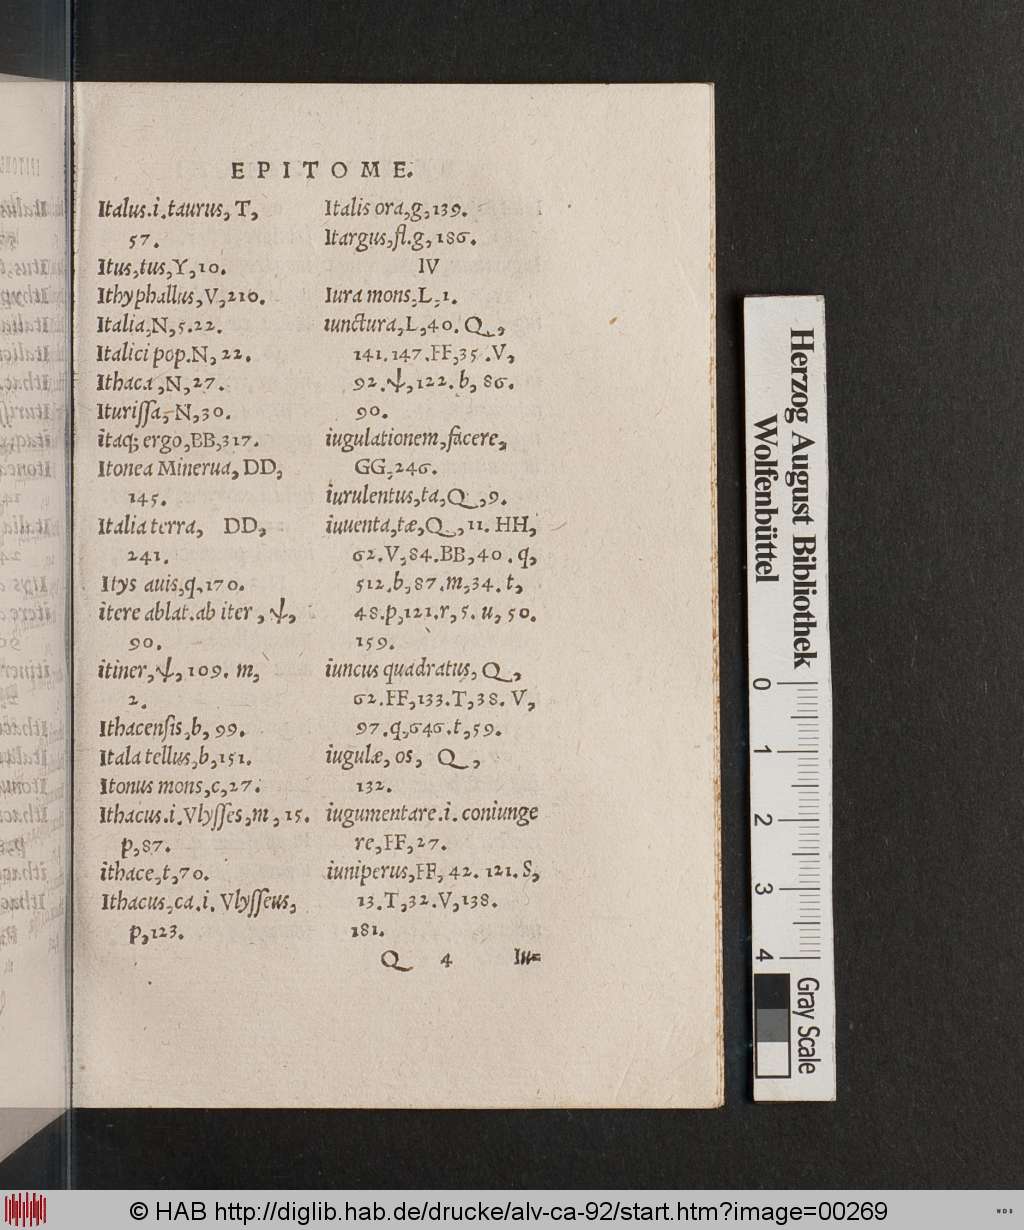 EPITOME.
Italus.i.taurus, T,
57.
Itus,tus,Y,10.
Ithyphallus,V,210.
Italia,N,5.22.
Italici pop.N,22.
Ithaca,N,27.
Iturissa,N,30.
itaq; ergo,BB,317.
Itonea Minerua, DD,
145.
Italia terra, DD,
241.
Itys auis,q,170.
itere ablat.ab iter, ψ,
90.
itiner,ψ,109. m,
2.
Ithacensis,b, 99.
Itala tellus,b,151.
Itonus mons,c,27.
Ithacus.i.Vlysses,m,15.
p,87.
ithace,t,70.
Ithacus,ca.i.Vlysseus,
p,123.
Italis ora,g,139.
Itargus,fl.g,186.
IV
Iura mons,L,1.
iunctura,L,40. Q,
141.147.FF,35.V,
92.ψ,122.b, 86.
90.
iugulationem,facere,
GG,246.
iurulentus,ta,Q,9.
iuuenta,tæ,Q,11. HH,
62.V,84.BB,40.q,
512.b,87.m,34.t,
48.p,121.r,5.u,50.
159.
iuncus quadratus, Q,
62.FF,133.T,38. V,
97.q,646.t,59.
iugulæ, os, Q,
132.
iugumentare.i. coniunge
re,FF,27.
iuniperus,FF, 42. 121. S,
13.T,32.V,138.
181.
Q 4 Iu=
Herzog August Bibliothek
Wolfenbüttel
0 1 2 3 4
Gray Scale
© HAB http://diglib.hab.de/drucke/alv-ca-92/start.htm?image=00269